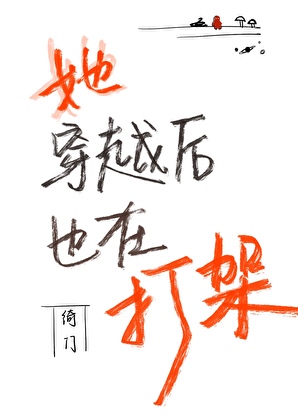 她
穿越后
也在
打架
绮门